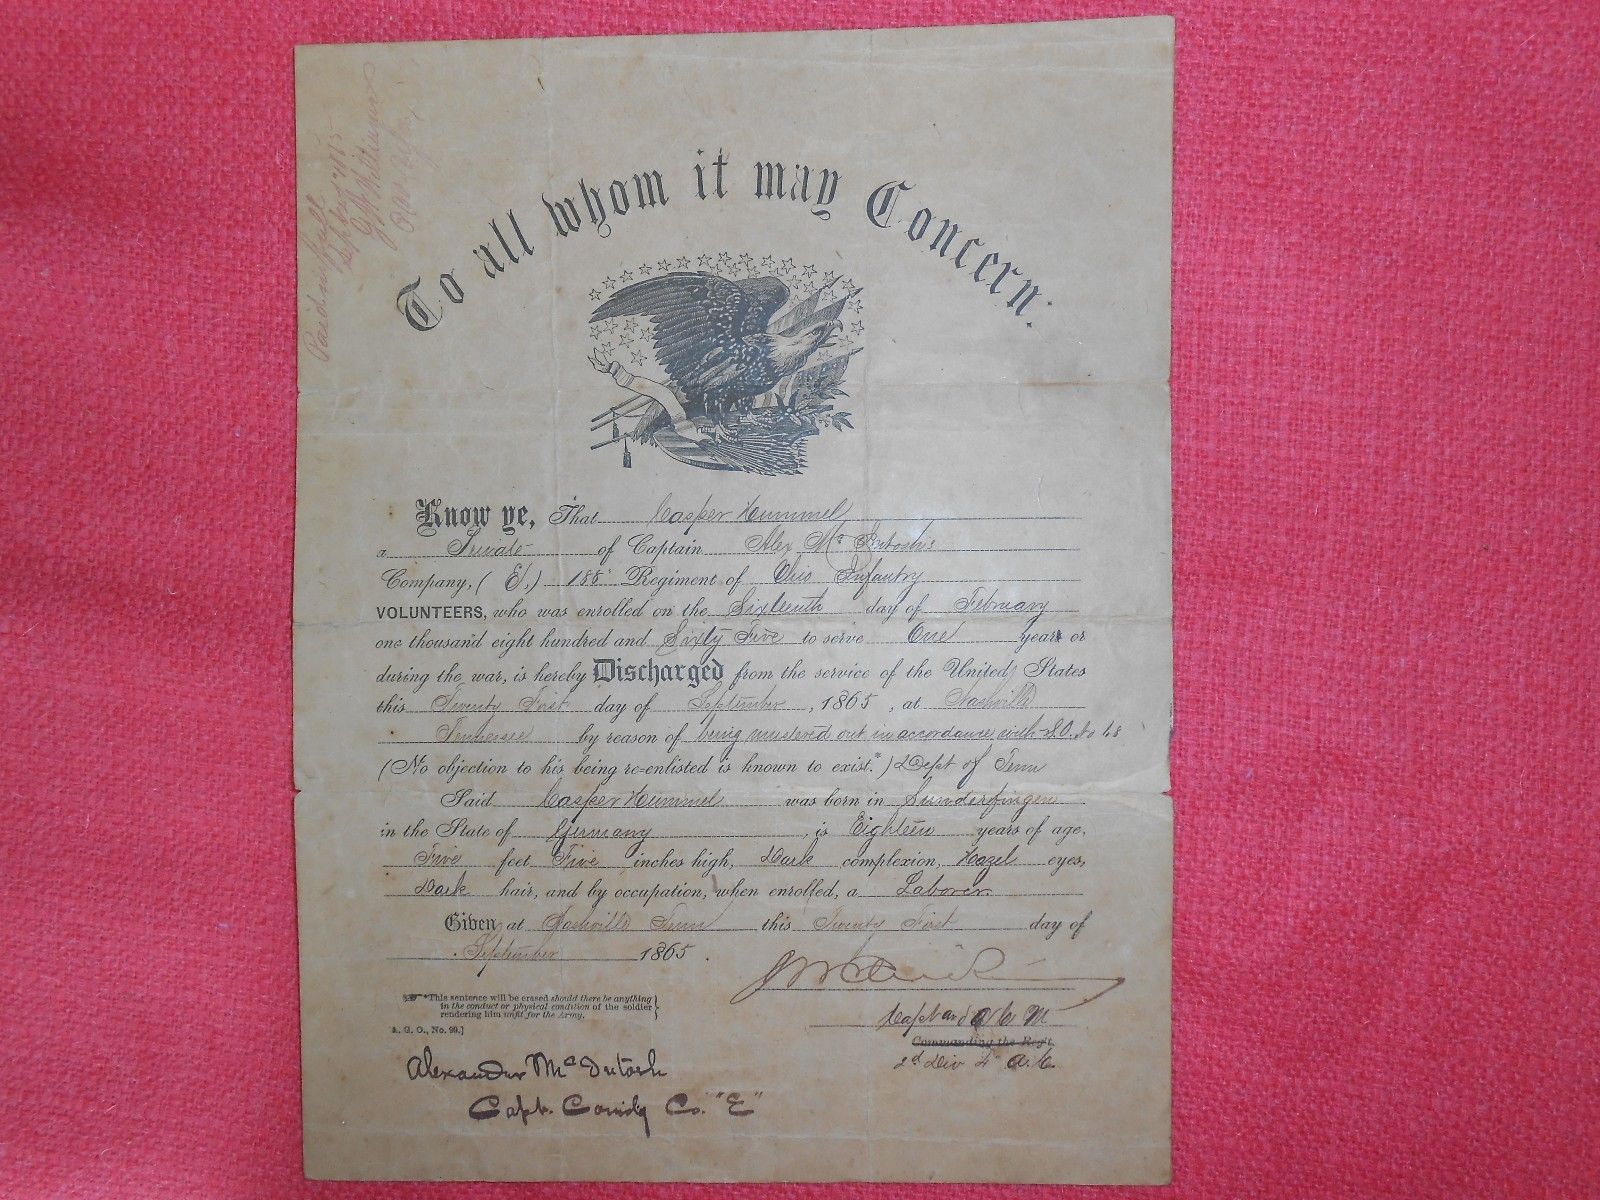 Paid in full
To all whom it may Concern:
Know ye, That Casper Hummel
a Private of Captain Alex McIntosh's
Company, (E,) 188 Regiment of Ohio Infantry
VOLUNTEERS, who was enrolled on the Sixteenth day of February
one thousand eight hundred and Sixty Five to serve One years or
during the war, is hereby Discharged from the service of the United States
this Twenty First day of September, 1865, at Nashville
Tennessee by reason of being mustered out in accordance with S.O. No 68
(No objection to his being re-enlisted is known to exist.*) Dept of Tenn
Said Casper Hummel was born in Sunderfingen
in the State of Germany, is Eighteen years of age,
Five feet Five inches high, Dark complexion, Hazel eyes,
Dark hair, and by occupation, when enrolled, a Laborer
Given at Nashville Tenn this Twenty First day of
September 1865.
*This sentence will be erased should there be anything
in the conduct or physical condition of the soldier
rendering him unfit for the Army.
[A. G. O., No. 99.]
Capt and A C M
Commanding the Reg't.
2d Div 4" A.C.
Alexander McIntosh
Capt. Comdg Co. "E"